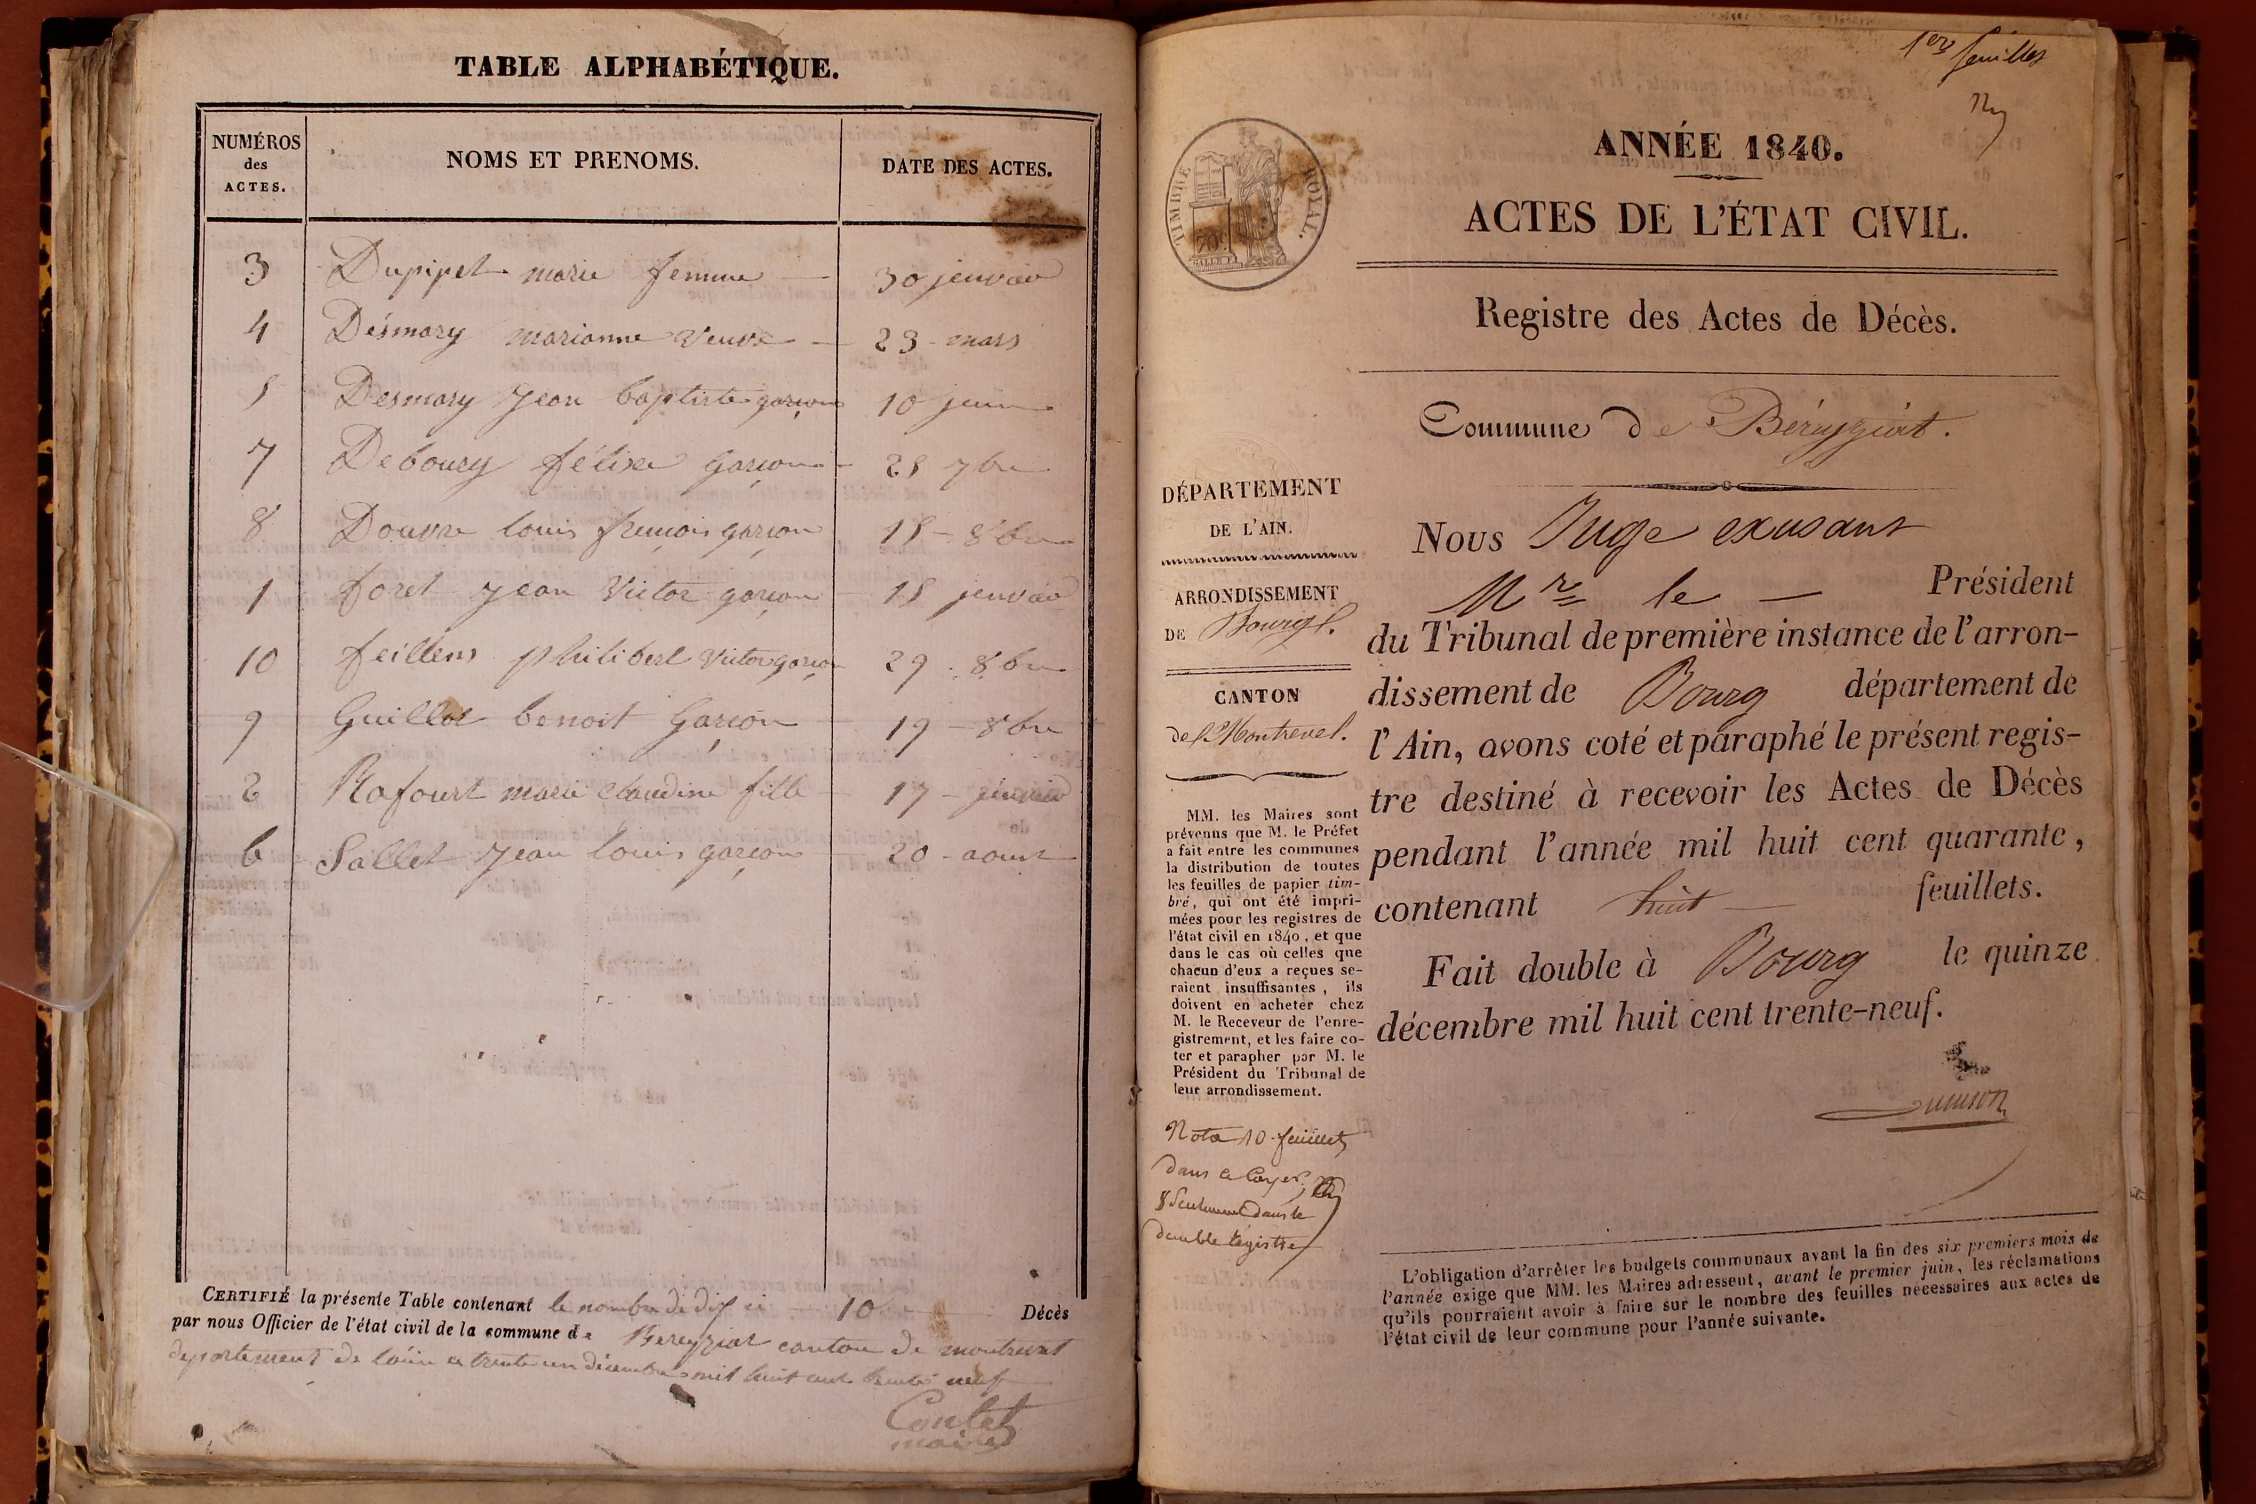 TABLE ALPHABÉTIQUE.
NUMÉROS
des
ACTES.
NOMS ET PRENOMS.
DATE DES ACTES.
3 Dupipet marie femme 30 jenvier
4 Désmary marianne Veuve 23 mars
5 Desmary jean baptiste garçon 10 juin
7 Deboucy félixe garçon 25 7bre
8 Douvre louis françois garçon 15 8bre
1 foret jean Victor garçon 15 jenvier
10 feillens philibert Victor garçon 29 8bre
9 Guillot benoit Garçon 19 8bre
2 Rafourt marie Claudine fille 17 jenvier
6 Sallet jean louis garçon 20 aoust
CERTIFIÉ la présente Table contenant le nombre de dix 10 Décès
par nous Officier de l'état civil de la commune de Bereyziat canton de montrevel
departement de l'ain ce trente un décembre mil huit cent trente neuf
Contet
maire
1ers feuillet
ANNÉE 1840.
TIMBRE ROYAL.
ACTES DE L'ÉTAT CIVIL.
Registre des Actes de Décès.
Commune de Béreyziat.
DÉPARTEMENT
DE L'AIN.
ARRONDISSEMENT
DE Bourg.
CANTON
de Montrevel.
MM. les Maires sont
prévenus que M. le Préfet
a fait entre les communes
la distribution de toutes
les feuilles de papier tim-
bré, qui ont été impri-
mées pour les registres de
l'état civil en 1840, et que
dans le cas où celles que
chacun d'eux a reçues se-
raient insuffisantes, ils
doivent en acheter chez
M. le Receveur de l'enre-
gistrement, et les faire co-
ter et parapher par M. le
Président du Tribunal de
leur arrondissement.
Nota 10 feuillets
dans ce Cayer
8 Seulement dans le
double régistre
Nous Juge exusant
Mr le Président
du Tribunal de première instance de l'arron-
dissement de Bourg département de
l'Ain, avons coté et paraphé le présent regis-
tre destiné à recevoir les Actes de Décès
pendant l'année mil huit cent quarante,
contenant huit feuillets.
Fait double à Bourg le quinze
décembre mil huit cent trente-neuf.
L'obligation d'arrêter les budgets communaux avant la fin des six premiers mois de
l'année exige que MM. les Maires adressent, avant le premier juin, les réclamations
qu'ils pourraient avoir à faire sur le nombre des feuilles nécessaires aux actes de
l'état civil de leur commune pour l'année suivante.